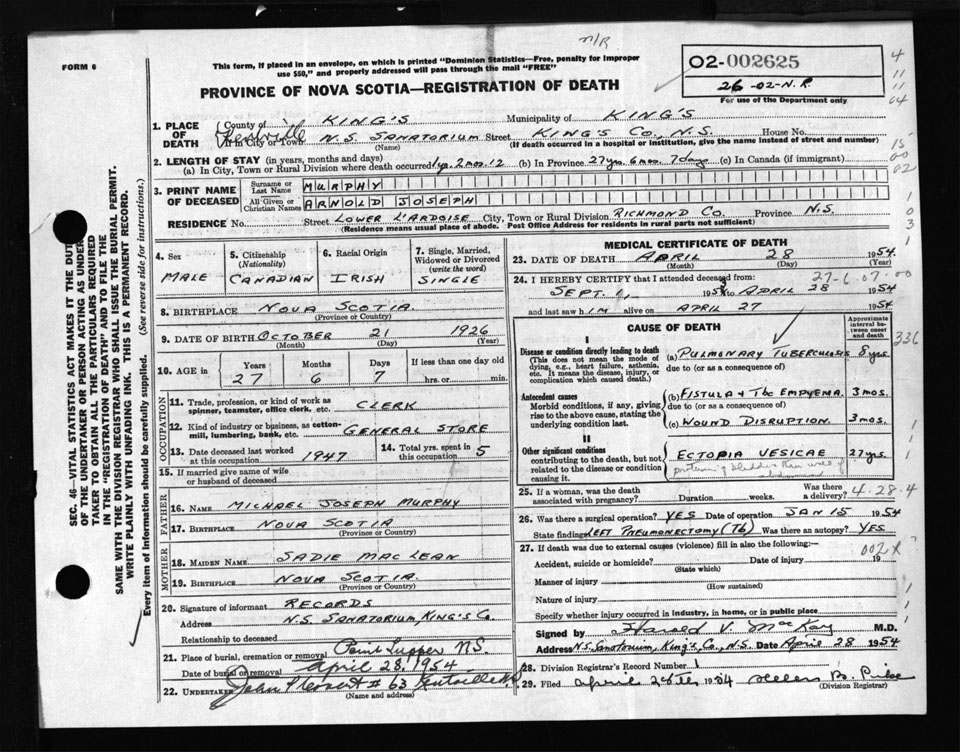 n/R
FORM 6
This form, if placed in an envelope, on which is printed "Dominion Statistics—Free, penalty for improper
use $50," and properly addressed will pass through the mail "FREE"
02-002625
26-02-N.R.
For use of the Department only
PROVINCE OF NOVA SCOTIA—REGISTRATION OF DEATH
1. PLACE OF DEATH
County of KING'S Municipality of KING'S
If in City or Town N.S. SANATORIUM Street KING'S CO., N.S. House No.
(Name) (If death occurred in a hospital or institution, give the name instead of street and number)
2. LENGTH OF STAY (in years, months and days)
(a) In City, Town or Rural Division where death occurred 1 yr. 2 mos. 12 (b) In Province 27 yrs 6 mos. 7 days (c) In Canada (if immigrant)
3. PRINT NAME OF DECEASED
Surname or Last Name MURPHY
All Given or Christian Names ARNOLD JOSEPH
RESIDENCE No. Street LOWER L'ARDOISE City, Town or Rural Division RICHMOND CO. Province N.S.
(Residence means usual place of abode. Post Office Address for residents in rural parts not sufficient)
4. Sex
MALE
5. Citizenship (Nationality)
CANADIAN
6. Racial Origin
IRISH
7. Single, Married, Widowed or Divorced (write the word)
SINGLE
8. BIRTHPLACE NOVA SCOTIA.
(Province or Country)
9. DATE OF BIRTH OCTOBER 21 1926
(Month) (Day) (Year)
10. AGE in Years Months Days If less than one day old
27 6 7 hrs. or min.
OCCUPATION
11. Trade, profession, or kind of work as spinner, teamster, office clerk, etc. CLERK
12. Kind of industry or business, as cotton-mill, lumbering, bank, etc. GENERAL STORE
13. Date deceased last worked at this occupation 1947
14. Total yrs. spent in this occupation 5
15. If married give name of wife or husband of deceased
FATHER
16. NAME MICHAEL JOSEPH MURPHY
17. BIRTHPLACE NOVA SCOTIA
(Province or Country)
MOTHER
18. MAIDEN NAME SADIE MACLEAN
19. BIRTHPLACE NOVA SCOTIA.
(Province or Country)
20. Signature of informant RECORDS
Address N.S. SANATORIUM, KING'S CO.
Relationship to deceased
21. Place of burial, cremation or removal Point Tupper N.S.
Date of burial or removal April 28, 1954
22. UNDERTAKER # 63 Kentville N.S.
(Name and address)
MEDICAL CERTIFICATE OF DEATH
23. DATE OF DEATH APRIL 28 1954
(Month) (Day) (Year)
24. I HEREBY CERTIFY that I attended deceased from:
SEPT. 1, 195 to APRIL 28 1954
and last saw h IM alive on APRIL 27 1954
CAUSE OF DEATH
Approximate interval between onset and death
I
Disease or condition directly leading to death
(This does not mean the mode of dying, e.g., heart failure, asthenia, etc. It means the disease, injury, or complication which caused death.)
(a) PULMONARY TUBERCULOSIS 8 yrs.
due to (or as a consequence of)
Antecedent causes
Morbid conditions, if any, giving rise to the above cause, stating the underlying condition last.
(b) FISTULA & TBC EMPYEMA. 3 mos.
due to (or as a consequence of)
(c) WOUND DISRUPTION. 3 mos.
II
Other significant conditions
contributing to the death, but not related to the disease or condition causing it.
ECTOPIA VESICAE 27 yrs.
25. If a woman, was the death associated with pregnancy? Duration weeks. Was there a delivery?
4.28.4
26. Was there surgical operation? YES Date of operation JAN 15 1954
State findings LEFT PNEUMONECTOMY (TB) Was there an autopsy? YES
27. If death was due to external causes (violence) fill in also the following:
Accident, suicide or homicide? Date of injury 19
(State which)
Manner of injury
(How sustained)
Nature of injury
Specify whether injury occurred in industry, in home, or in public place
Signed by Harold V. MacKay M.D.
Address N.S. Sanatorium, King's, Co., N.S. Date April 28 1954
28. Division Registrar's Record Number 1
29. Filed April 28th 1954
(Division Registrar)
SEC. 46—VITAL STATISTICS ACT MAKES IT THE DUTY
OF THE UNDERTAKER OR PERSON ACTING AS UNDER-
TAKER TO OBTAIN ALL THE PARTICULARS REQUIRED
IN THE "REGISTRATION OF DEATH" AND TO FILE THE
SAME WITH THE DIVISION REGISTRAR WHO SHALL ISSUE THE BURIAL PERMIT.
WRITE PLAINLY WITH UNFADING INK. THIS IS A PERMANENT RECORD.
Every item of information should be carefully supplied. (See reverse side for instructions.)
27-6.07.00
336